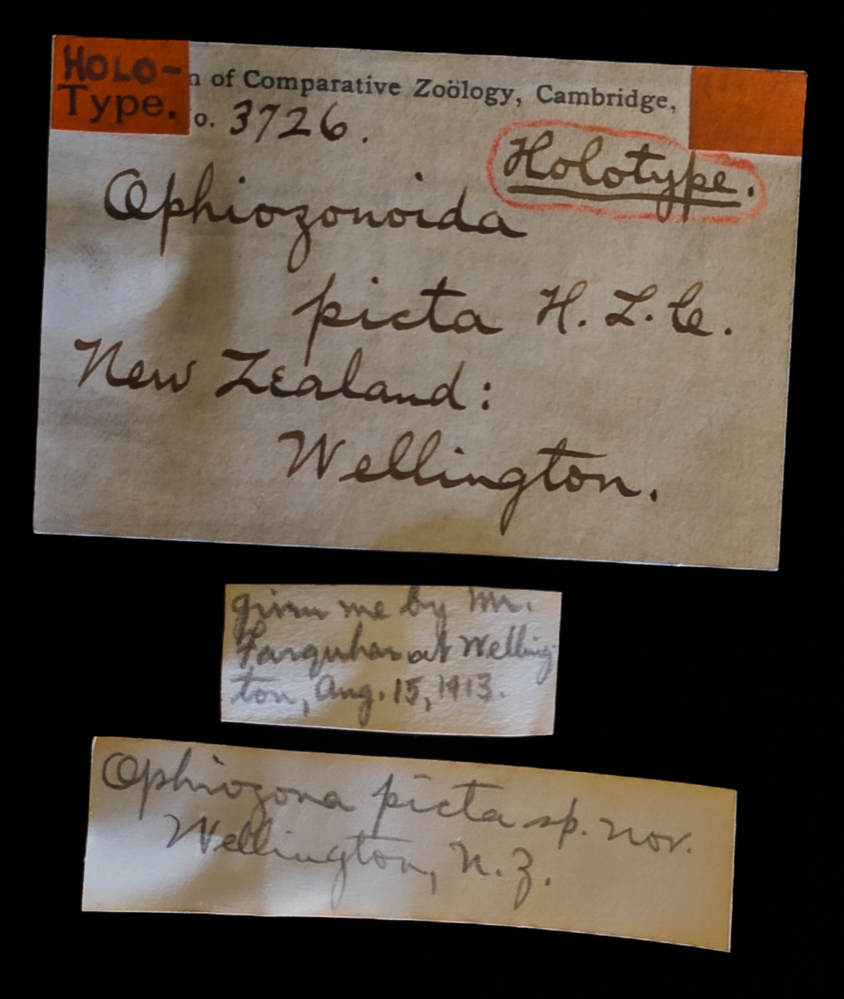 HOLO-
Type.
n of Comparative Zoölogy, Cambridge,
o. 3726.
Holotype.
Ophiozonoida
picta H. L. C.
New Zealand:
Wellington.
given me by Mr.
Farquhar at Welling
ton, Aug. 15, 1913.
Ophiozona picta sp. nov.
Wellington, N. Z.